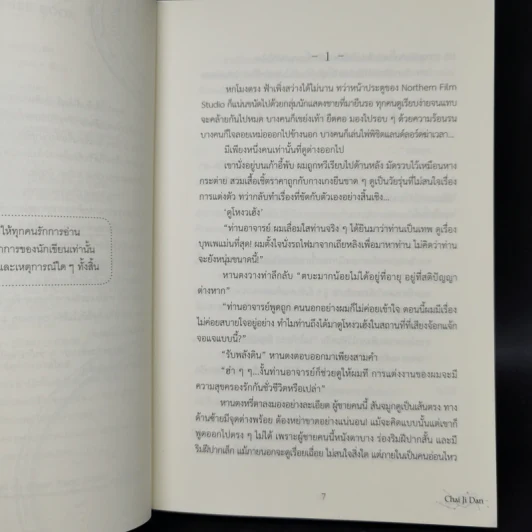 ให้ทุกคนรักการอ่าน
าการของนักเขียนเท่านั้น
และเหตุการณ์ใด ๆ ทั้งสิ้น
– 1 –
หกโมงตรง ฟ้าเพิ่งสว่างได้ไม่นาน ทว่าหน้าประตูของ Northern Film
Studio ก็แน่นขนัดไปด้วยกลุ่มนักแสดงชายที่มายืนรอ ทุกคนดูเรียบง่ายจนแทบ
จะคล้ายกันไปหมด บางคนก็เขย่งเท้า ยืดคอ มองไปรอบ ๆ ด้วยความร้อนรน
บางคนก็ใจลอยเหม่อออกไปข้างนอก บางคนก็เล่นไฟพิชิตแลนด์ลอร์ดฆ่าเวลา...
มีเพียงหนึ่งคนเท่านั้นที่ดูต่างออกไป
เขานั่งอยู่บนเก้าอี้พับ ผมถูกหวีเรียบไปด้านหลัง มัดรวบไว้เหมือนหาง
กระต่าย สวมเสื้อเชิ้ตราคาถูกกับกางเกงยีนขาด ๆ ดูเป็นวัยรุ่นที่ไม่สนใจเรื่อง
การแต่งตัว ทว่ากลับทำเรื่องที่ขัดกับตัวเองอย่างสิ้นเชิง...
'ดูโหงวเฮ้ง'
"ท่านอาจารย์ ผมเลื่อมใสท่านจริง ๆ ได้ยินมาว่าท่านเป็นเทพ ดูเรื่อง
บุพเพแม่นที่สุด! ผมตั้งใจนั่งรถไฟมาจากเถียหลิงเพื่อมาหาท่าน ไม่คิดว่าท่าน
จะยังหนุ่มขนาดนี้!"
หานตงวางท่าลึกลับ "ตบะมากน้อยไม่ได้อยู่ที่อายุ อยู่ที่สติปัญญา
ต่างหาก"
"ท่านอาจารย์พูดถูก คนนอกอย่างผมก็ไม่ค่อยเข้าใจ ตอนนี้ผมมีเรื่อง
ไม่ค่อยสบายใจอยู่อย่าง ทำไมท่านถึงได้มาดูโหงวเฮ้งในสถานที่ที่เสียงจ้อกแจ้ก
จอแจแบบนี้?"
"รับพลังดิน" หานตงตอบออกมาเพียงสามคำ
"ฮ่า ๆ ๆ...งั้นท่านอาจารย์ก็ช่วยดูให้ผมที การแต่งงานของผมจะมี
ความสุขครองรักกันชั่วชีวิตหรือเปล่า"
หานตงหรี่ตาลงมองอย่างละเอียด ผู้ชายคนนี้ สันจมูกดูเป็นเส้นตรง ทาง
ด้านซ้ายมีจุดด่างพร้อย ต้องหย่าขาดอย่างแน่นอน! แม้จะคิดแบบนั้นแต่เขาก็
พูดออกไปตรง ๆ ไม่ได้ เพราะผู้ชายคนนี้หนังตาบาง ร่องริมฝีปากสั้น และมี
ริมฝีปากเล็ก แม้ภายนอกจะดูเรื่อยเฉื่อย ไม่สนใจสิ่งใด แต่ภายในเป็นคนอ่อนไหว
7
Chai Ji Dan